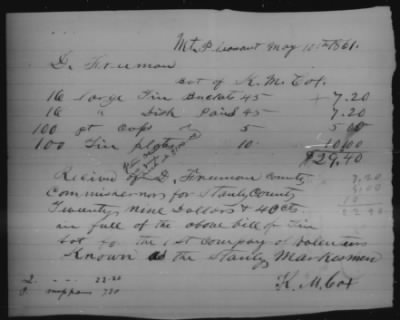 Mt, Pleasant May 10th 1861.
D. Freeman
bot of K. M. Cox.
16 Large Tin Buckets 45 7.20
16 " Dish Pans 45 7.20
100 pt Cups 5 5 00
100 Tin plates 10. 10.00
$29.40
Recived of D. Freeman County
Commishernors for Stanly County
Twenty nine Dollars & 40 cts.
in full of the above bill of Tin
bot for the 1st Company of Volenteers
Known as the Stanly Markesmen
K. M. Cox
7.20
5.00
10
22.20
22.20
720